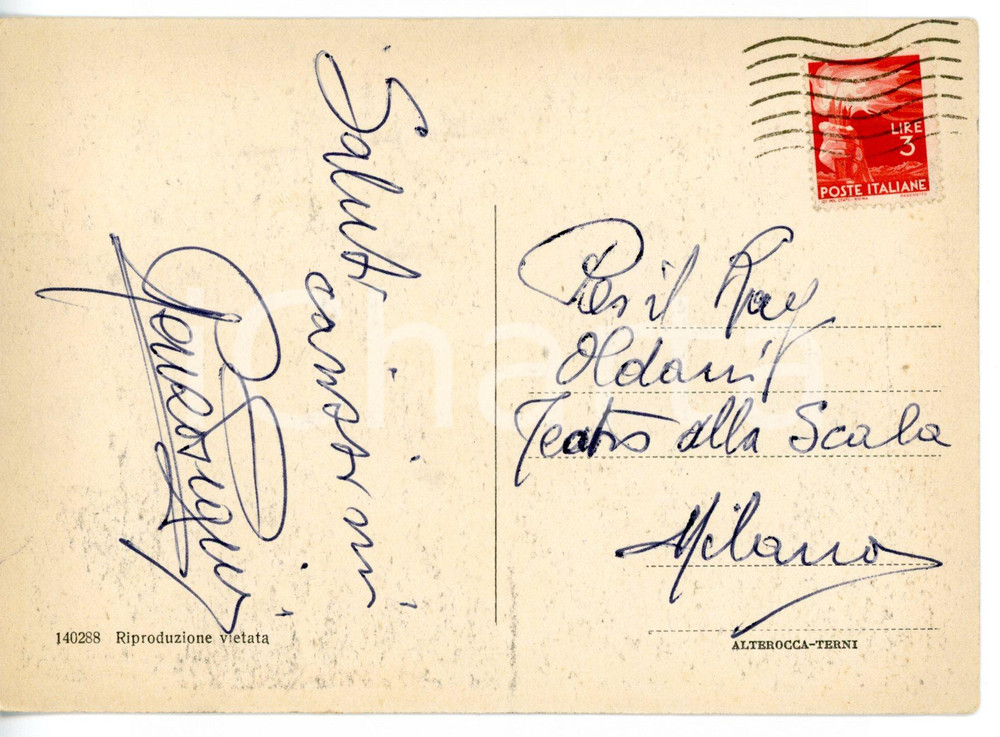 Saluti
carissimi
LIRE
3
POSTE ITALIANE
Rag
Oldani
Teatro alla Scala
Milano
140288 Riproduzione vietata
ALTEROCCA-TERNI
iCharta